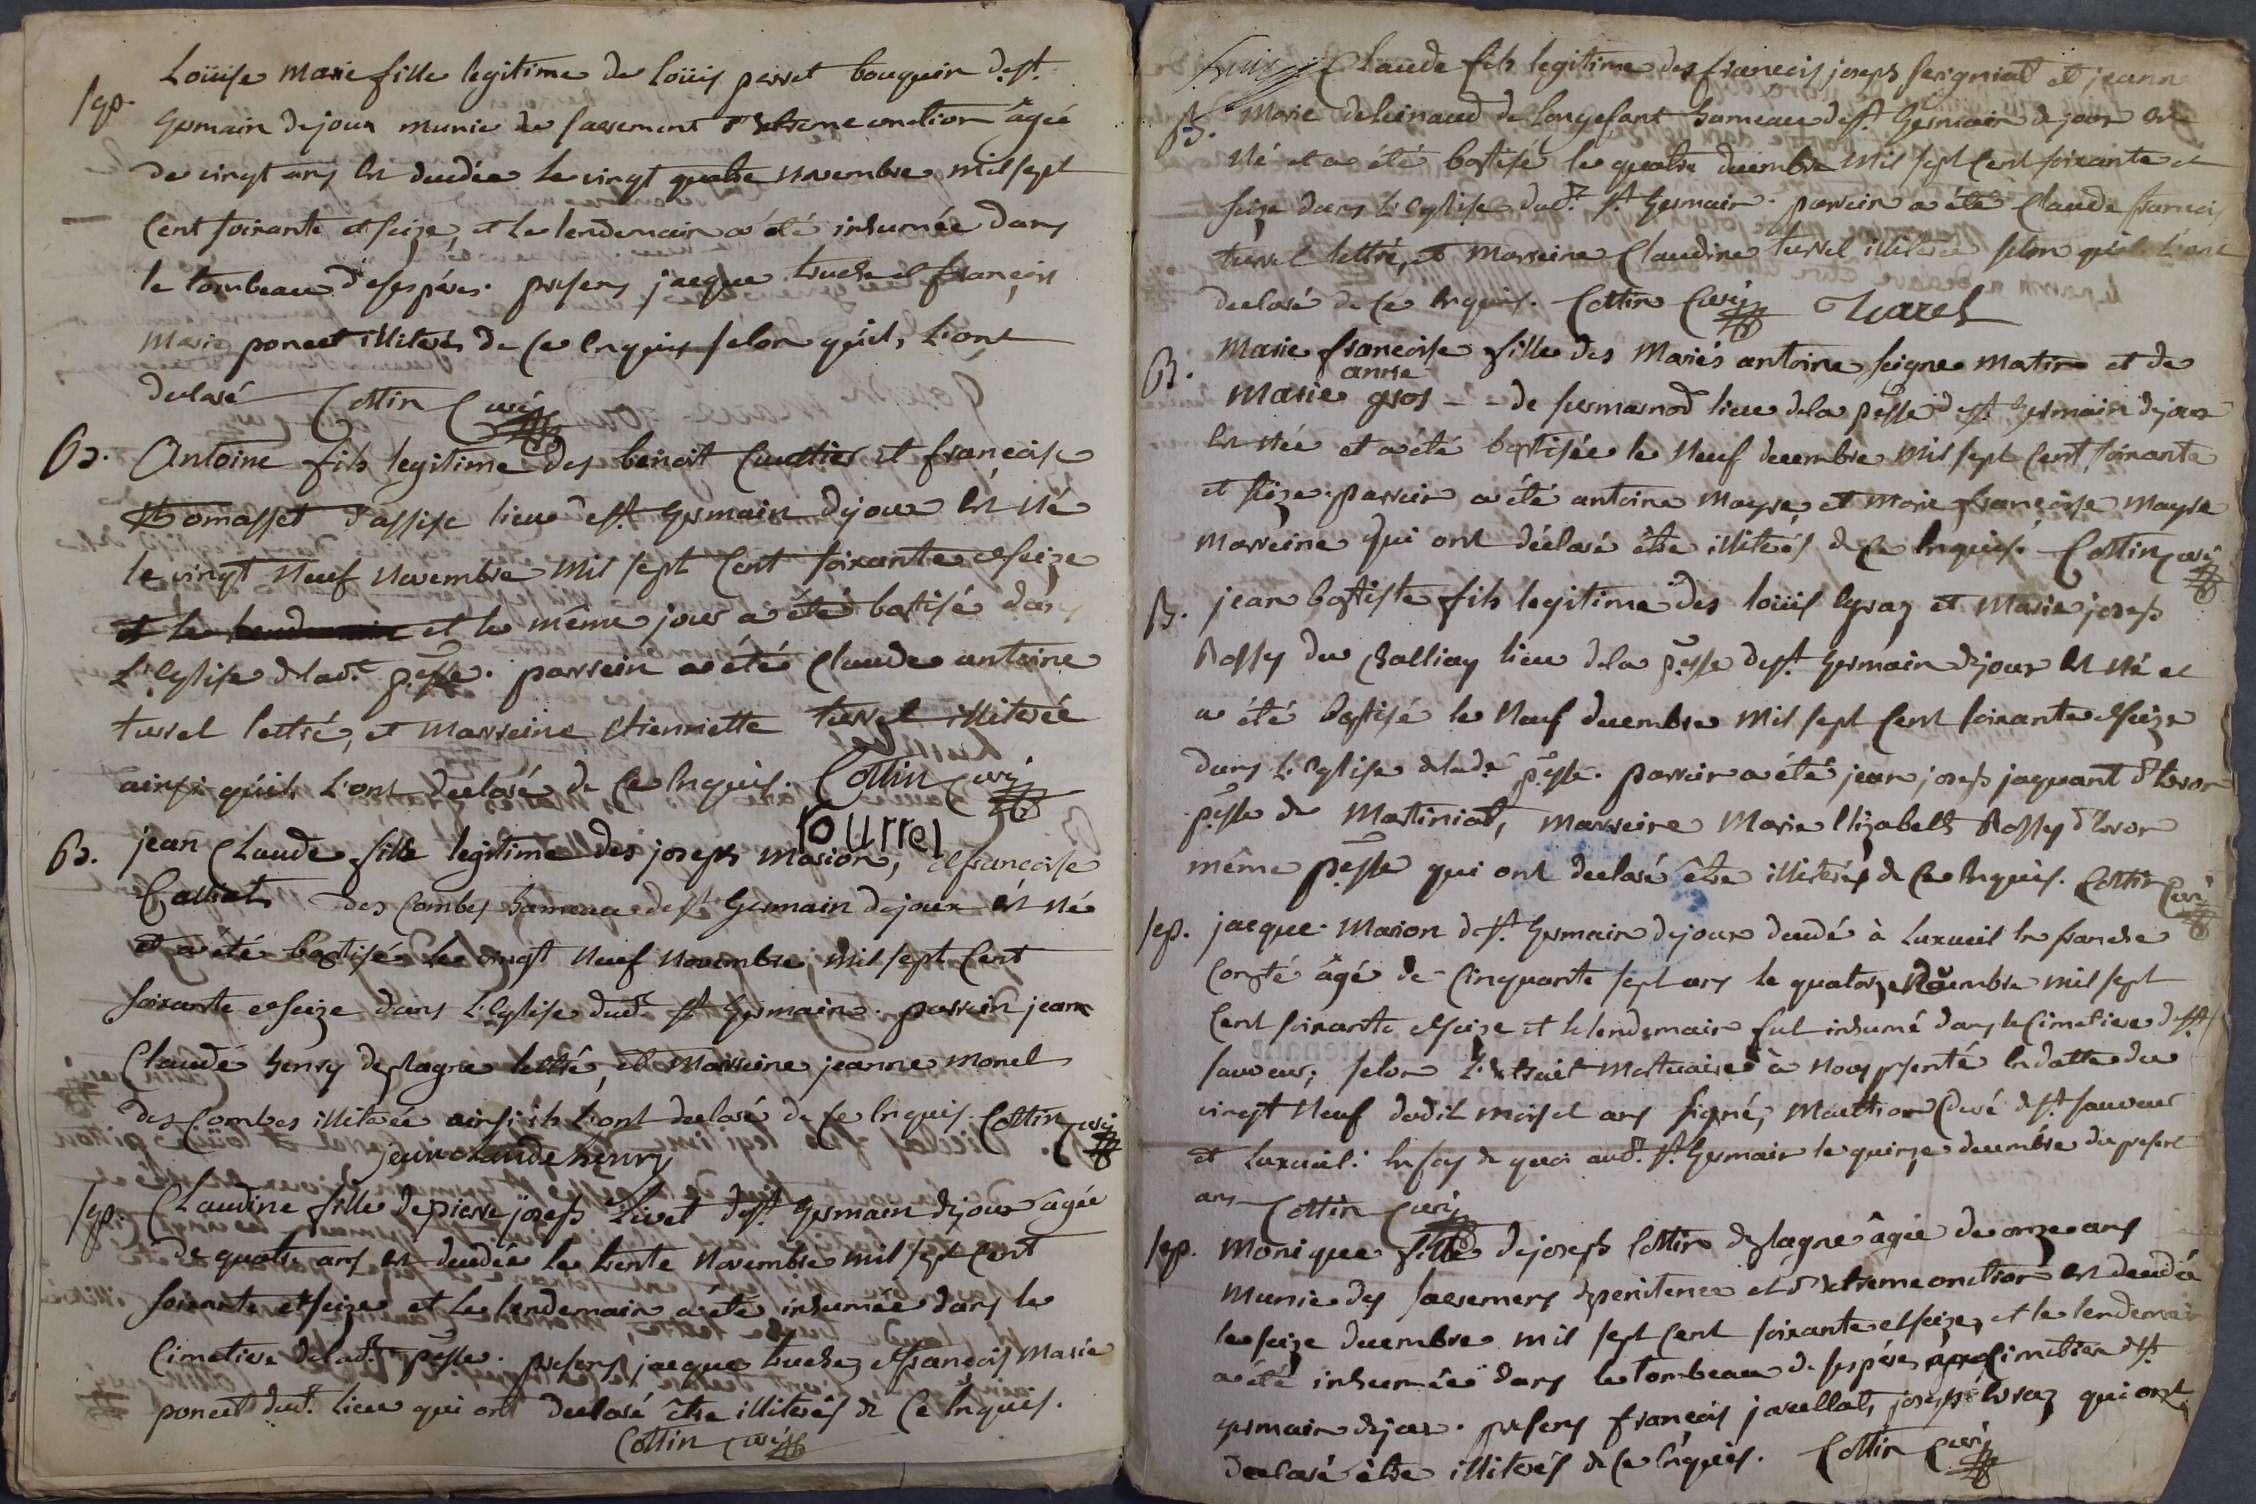 Loüise marie fille legitime de loüis perret bouquin de st.
sep.
Germain dejoux munie de sacrement d'extreme onction âgée
de vingt ans est decedée le vingt quatre novembre mil sept
Cent soixante et seize, et le lendemain a été inhumée dans
le tombeau de ses péres. presens jacque truche et françois
Marie poncet illiterés de ce enquis selon qu'ils l'ont
declaré Cottin Curé
B. Antoine fils legitime des benoit et francoise
Thomasset d'assise lieu de st. Germain dejoux est né
le vingt neuf novembre mil sept Cent soixante et seize
et le lendemain et le même jour a été baptisé dans
L'Eglise de lad.te psse. parrein a été Claude antoine
turrel lettré, et marreine etiennette turrel illiterée
ainsi qu'ils l'ont declaré de ce enquis. Cottin Curé
tourrel
B. jean Claude fille legitime des joseph marion, et francoise
des Combes hameau de st. Germain dejoux est né
et a été baptisé le vingt neuf novembre mil sept Cent
soixante et seize dans L'Eglise dud.t st Germain. parrein jean
Claude henry deplagne lettré, et marreine jeanne monet
des Combes illiterée ainsi ils l'ont declaré de ce enquis. Cottin Curé
jean claude henry
sep. Claudine fille de pierre joseph Livet de st. Germain dejoux âgée
de quatre ans est decedée le trente novembre mil sept Cent
soixante et seize et le lendemain a été inhumée dans le
Cimetiere de lad.te psse. presens jacque truche, et françois Marie
poncet dud.t lieu qui ont declaré être illiterés de ce enquis.
Cottin Curé
Claude fils legitime des francois joseph et jeanne
B. Marie de Longefant hameau de st. Germain dejoux est
né et a été baptisé le quatre decembre mil sept Cent soixante et
seize dans L'Eglise dud.t st Germain. parrein a été Claude francois
turrel lettré, et marreine Claudine turrel illiterée selon qu'ils l'ont
declaré de ce enquis. Cottin Curé
Marie francoise fille des mariés antoine seigne martin et de
B. anne
Marie gros - - de lieu de la psse de st. Germain dejoux
est née et a été baptisée le neuf decembre mil sept Cent soixante
et seize. parrein a été antoine mayre, et marie françoise mayre
marreine qui ont déclaré être illiterés de ce enquis. Cottin Curé
B. jean baptiste fils legitime des loüis et marie joseph
Rossy du lieu de la psse de st. Germain dejoux est né et
a été baptisé le neuf decembre mil sept Cent soixante et seize
dans L'Eglise de lad.te psse. parrein a été jean joseph jaquant
psse de Martiniat, marreine Marie Elizabeth Rossy
même psse qui ont declaré être illiterés de ce enquis. Cottin Curé
sep. jacque marion de st. Germain dejoux decedé à Luxueil en franche
Comté âgé de Cinquante sept ans le quatorze mil sept
Cent soixante et seize et le lendemain fut inhumé dans le Cimetiere de st.
sauveur, selon L'extrait mortuaire à nous presenté en datte du
vingt neuf dudit mois et ans signé, Curé de st. sauveur
et Luxueil. En foy de quoi aud.t st. Germain le quinze decembre du present
ans Cottin Curé
sep. Monique fille de joseph Cottin deplagne âgée de onze ans
munie des sacremens de penitence et d'extreme onction est decedée
le seize decembre mil sept Cent soixante et seize, et le lendemain
a été inhumée dans le tombeau de ses péres Cimetiere de st.
germain dejoux. presens françois javellot, joseph qui ont
declaré être illiterés de ce enquis. Cottin Curé